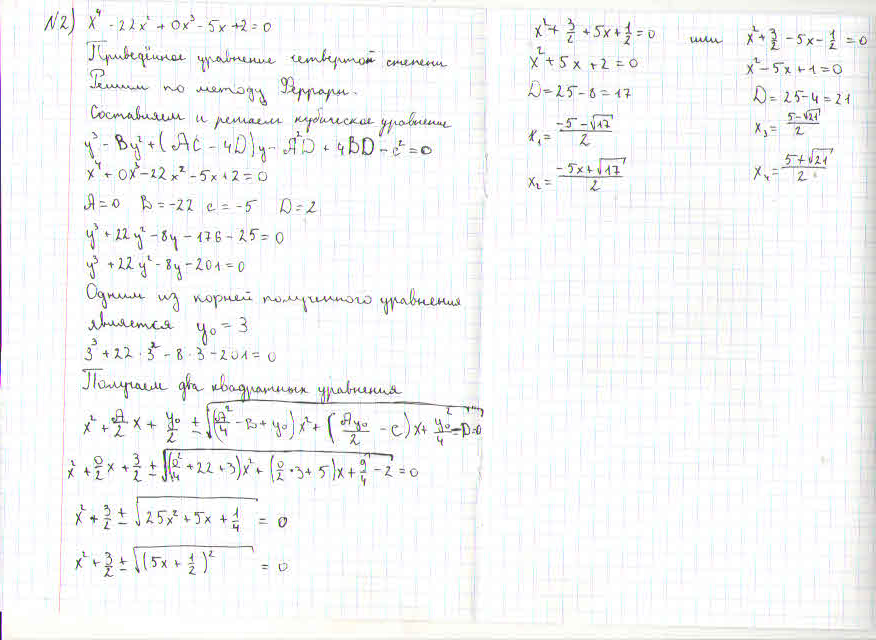 N2) x⁴ - 22x² + 0x³ - 5x + 2 = 0
Приведённое уравнение четвертой степени
Решим по методу Феррари.
Составляем и решаем кубическое уравнение
y³ - By² + (AC - 4D)y - A²D + 4BD - c² = 0
x⁴ + 0x³ - 22x² - 5x + 2 = 0
A = 0 B = -22 c = -5 D = 2
y³ + 22y² - 8y - 176 - 25 = 0
y³ + 22y² - 8y - 201 = 0
Одним из корней полученного уравнения
является y₀ = 3
3³ + 22 · 3² - 8 · 3 - 201 = 0
Получаем два квадратных уравнения
x² + A/2 x + y₀/2 ± √((A²/4 - B + y₀)x² + (Ay₀/2 - c)x + y₀²/4 - D = 0
x² + 0/2 x + 3/2 ± √((0²/4 + 22 + 3)x² + (0/2 · 3 + 5)x + 9/4 - 2 = 0
x² + 3/2 ± √(25x² + 5x + 1/4) = 0
x² + 3/2 ± √((5x + 1/2)²) = 0
x² + 3/2 + 5x + 1/2 = 0 или x² + 3/2 - 5x - 1/2 = 0
x² + 5x + 2 = 0 x² - 5x + 1 = 0
D = 25 - 8 = 17 D = 25 - 4 = 21
x₁ = (-5 - √17)/2 x₃ = (5 - √21)/2
x₂ = (-5x + √17)/2 x₄ = (5 + √21)/2